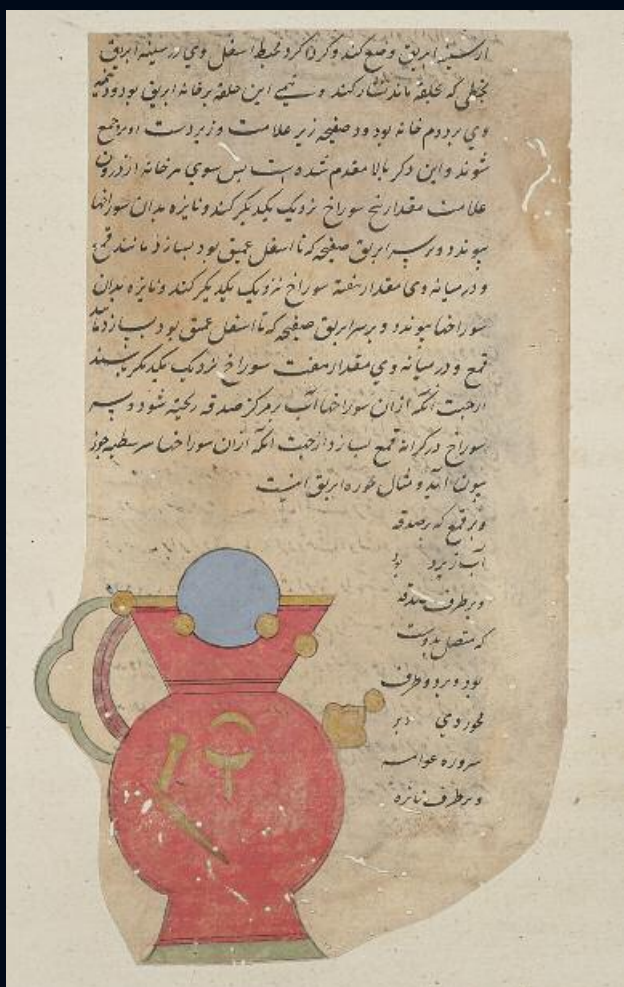 از سینه ابریق وضع کند و کرداکرد محیط اسفل وی در سینه ابریق
بخطی که بحلقه ماند کند و نیمی این حلقه بر خانه ابریق بود و نیمه
وی بر دوم خانه بود و صفیحه زیر علامت و زبر دست او بر وجمع
شوند و این ذکر بالا مقدم شده است بس سوی هر خانه از درون
علامت مقدار پنج سوراخ نزدیک یکدیکر کند و نایزه بدان سوراخها
پیوندد و بر سر ابریق صفیحه که تا اسفل عمیق بود بسازد مانند قمع
و در میانه وی مقدار هفته سوراخ نزدیک یکدیکر کند و نایزه بدان
سوراخها پیوندد و بر سر ابریق صفیحه که تا اسفل عمیق بود بسازد مانند
قمع و در میانه وی مقدار هفت سوراخ نزدیک یکدیکر باشند
از جهت آنکه از ان سوراخها آب بر مرکز صدقه ریخته شود و سه
سوراخ در کرانه قمع بسازد از جهت آنکه از ان سوراخها
بیرون آید و مثال صوره ابریق اینست
و بر قمع که بر صدقه
آب ریزد
و بر طرف صدقه
که متصل بدوست
بود و بر دو طرف
محور دی بر
سروره عوامه
و بر طرف نایزه